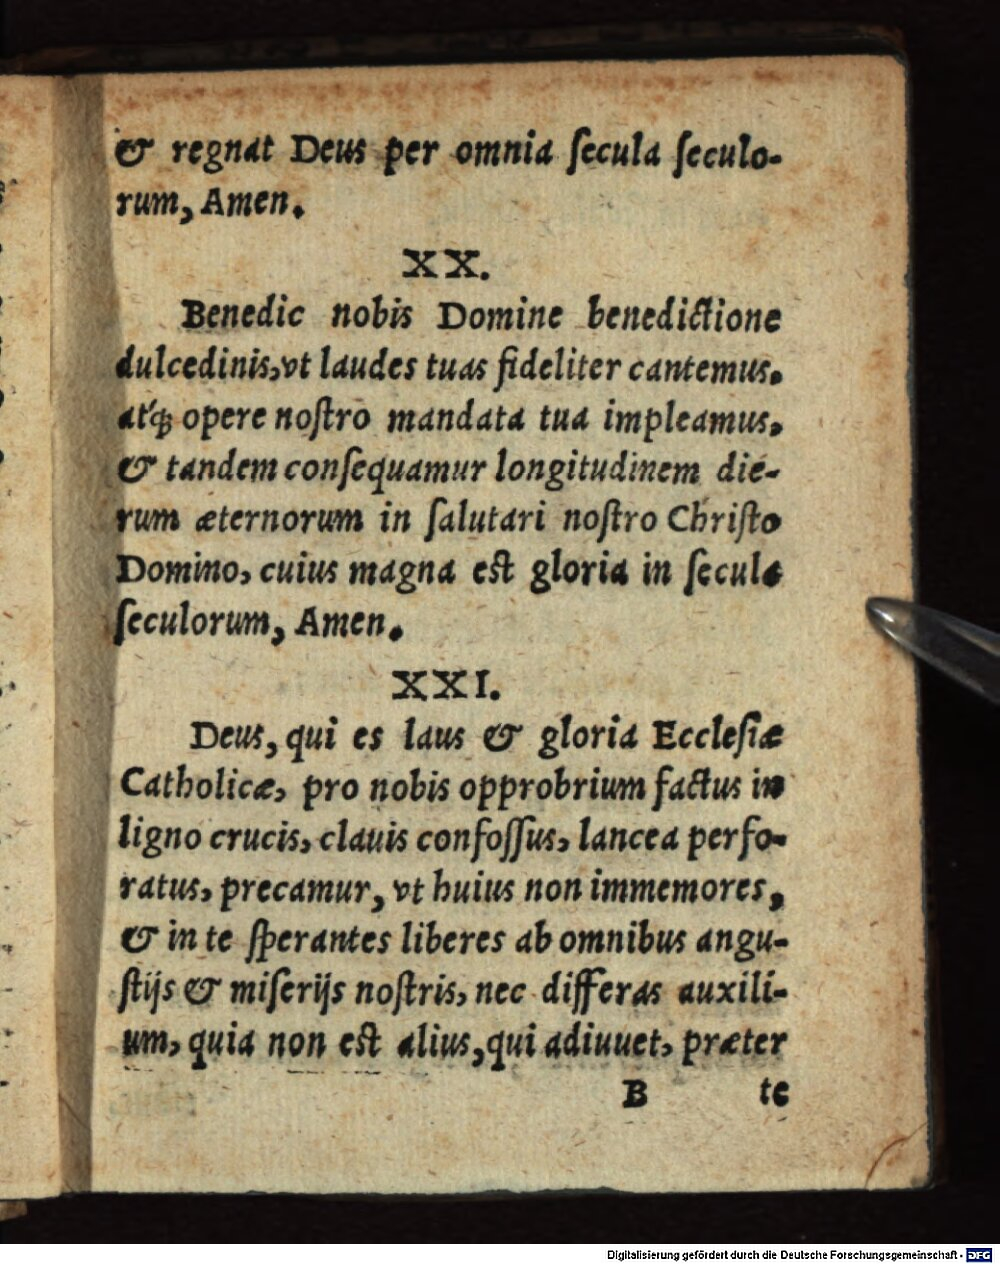 & regnat Deus per omnia ſecula ſeculo-
rum, Amen.
XX.
Benedic nobis Domine benedictione
dulcedinis, vt laudes tuas fideliter cantemus,
atq́ꝫ opere noſtro mandata tua impleamus,
& tandem conſequamur longitudinem die-
rum æternorum in ſalutari noſtro Chriſto
Domino, cuius magna est gloria in ſecula
ſeculorum, Amen.
XXI.
Deus, qui es laus & gloria Eccleſiæ
Catholicæ, pro nobis opprobrium factus in
ligno crucis, clauis confoſſus, lancea perfo-
ratus, precamur, vt huius non immemores,
& in te ſperantes liberes ab omnibus angu-
ſtijs & miſerijs noſtris, nec differas auxili-
um, quia non est alius, qui adiuuet, præter
B te
Digitalisierung gefördert durch die Deutsche Forschungsgemeinschaft - DFG